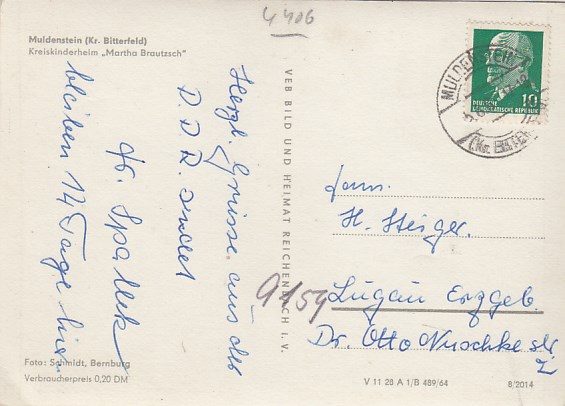 4406
Muldenstein (Kr. Bitterfeld)
Kreiskinderheim „Martha Brautzsch"
Herzl. Grüsse aus der
D. D. R. sendet
Fr. Spallek
bleiben 14 Tage hier.
VEB BILD UND HEIMAT REICHENBACH i. V.
MULDENSTEIN
(Kr. BITTERF
10
DEUTSCHE
DEMOKRATISCHE REPUBLIK
Fam.
H. Steiger.
9159 Lugau Erzgeb.
Dr. Otto Nuschke str.
Foto: Schmidt, Bernburg
Verbraucherpreis 0,20 DM
V 11 28 A 1/B 489/64
8/2014